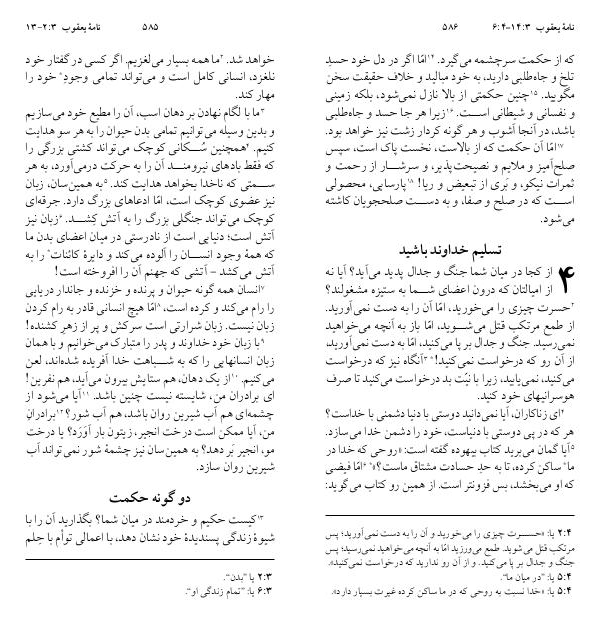 نامهٔ یعقوب ۲:۳-۱۳
۵۸۵
خواهد شد. ۲ما همه بسیار می‌لغزیم. اگر کسی در گفتار خود
نلغزد، انسانی کامل است و می‌تواند تمامی وجودِ* خود را
مهار کند.
۳ما با لگام نهادن بر دهان اسب، آن را مطیع خود می‌سازیم
و بدین وسیله می‌توانیم تمامی بدن حیوان را به هر سو هدایت
کنیم. ۴همچنین سُکانی کوچک می‌تواند کشتی بزرگی را
که فقط بادهای نیرومند آن را به حرکت درمی‌آورد، به هر
سمتی که ناخدا بخواهد هدایت کند. ۵به همین‌سان، زبان
نیز عضوی کوچک است، امّا ادعاهای بزرگ دارد. جرقه‌ای
کوچک می‌تواند جنگلی بزرگ را به آتش کِشد. ۶زبان نیز
آتش است؛ دنیایی است از نادرستی در میان اعضای بدن ما
که همهٔ وجود انسان را آلوده می‌کند و دایرهٔ کائنات* را به
آتش می‌کشد - آتشی که جهنم آن را افروخته است!
۷انسان همه گونه حیوان و پرنده و خزنده و جاندار دریایی
را رام می‌کند و کرده است، ۸امّا هیچ انسانی قادر به رام کردن
زبان نیست. زبان شرارتی است سرکش و پر از زهرِ کشنده!
۹با زبان خود خداوند و پدر را متبارک می‌خوانیم و با همان
زبان انسانهایی را که به شباهت خدا آفریده شده‌اند، لعن
می‌کنیم. ۱۰از یک دهان، هم ستایش بیرون می‌آید، هم نفرین!
ای برادران من، شایسته نیست چنین باشد. ۱۱آیا می‌شود از
چشمه‌ای هم آب شیرین روان باشد، هم آب شور؟ ۱۲برادرانِ
من، آیا ممکن است درخت انجیر، زیتون بار آوَرَد؟ یا درخت
مو، انجیر بَر دهد؟ به همین‌سان نیز چشمهٔ شور نمی‌تواند آب
شیرین روان سازد.
دو گونه حکمت
۱۳کیست حکیم و خردمند در میان شما؟ بگذارید آن را با
شیوهٔ زندگی پسندیدهٔ خود نشان دهد، با اعمالی توأم با حِلم
۲:۳ یا: "بدن".
۶:۳ یا: "تمام زندگی او".
نامهٔ یعقوب ۱۴:۳-۶:۴
۵۸۶
که از حکمت سرچشمه می‌گیرد. ۱۴امّا اگر در دل خود حسدِ
تلخ و جاه‌طلبی دارید، به خود مبالید و خلاف حقیقت سخن
مگویید. ۱۵چنین حکمتی از بالا نازل نمی‌شود، بلکه زمینی
و نفسانی و شیطانی است. ۱۶زیرا هر جا حسد و جاه‌طلبی
باشد، در آنجا آشوب و هر گونه کردار زشت نیز خواهد بود.
۱۷امّا آن حکمت که از بالاست، نخست پاک است، سپس
صلح‌آمیز و ملایم و نصیحت‌پذیر، و سرشار از رحمت و
ثمرات نیکو، و بَری از تبعیض و ریا! ۱۸پارسایی، محصولی
است که در صلح و صفا، و به دست صلحجویان کاشته
می‌شود.
تسلیم خداوند باشید
۴ از کجا در میان شما جنگ و جدال پدید می‌آید؟ آیا نه
از امیالتان که درون اعضای شما به ستیزه مشغولند؟
۲حسرت چیزی را می‌خورید، امّا آن را به دست نمی‌آورید.
از طمع مرتکب قتل می‌شوید، امّا باز به آنچه می‌خواهید
نمی‌رسید. جنگ و جدال بر پا می‌کنید، امّا به دست نمی‌آورید،
از آن رو که درخواست نمی‌کنید!* ۳آنگاه نیز که درخواست
می‌کنید، نمی‌یابید، زیرا با نیّت بد درخواست می‌کنید تا صرف
هوسرانیهای خود کنید.
۴ای زناکاران، آیا نمی‌دانید دوستی با دنیا دشمنی با خداست؟
هر که در پی دوستی با دنیاست، خود را دشمن خدا می‌سازد.
۵آیا گمان می‌برید کتاب بیهوده گفته است: «روحی که خدا در
ما* ساکن کرده، تا به حدِ حسادت مشتاق ماست؟»* ۶امّا فیضی
که او می‌بخشد، بس فزونتر است. از همین رو کتاب می‌گوید:
۲:۴ یا: «حسرت چیزی را می‌خورید و آن را به دست نمی‌آورید؛ پس
مرتکب قتل می‌شوید. طمع می‌ورزید امّا به آنچه می‌خواهید نمی‌رسید؛ پس
جنگ و جدال بر پا می‌کنید. و از آن رو ندارید که درخواست نمی‌کنید».
۵:۴ یا: "در میان ما".
۵:۴ یا: «خدا نسبت به روحی که در ما ساکن کرده غیرت بسیار دارد».